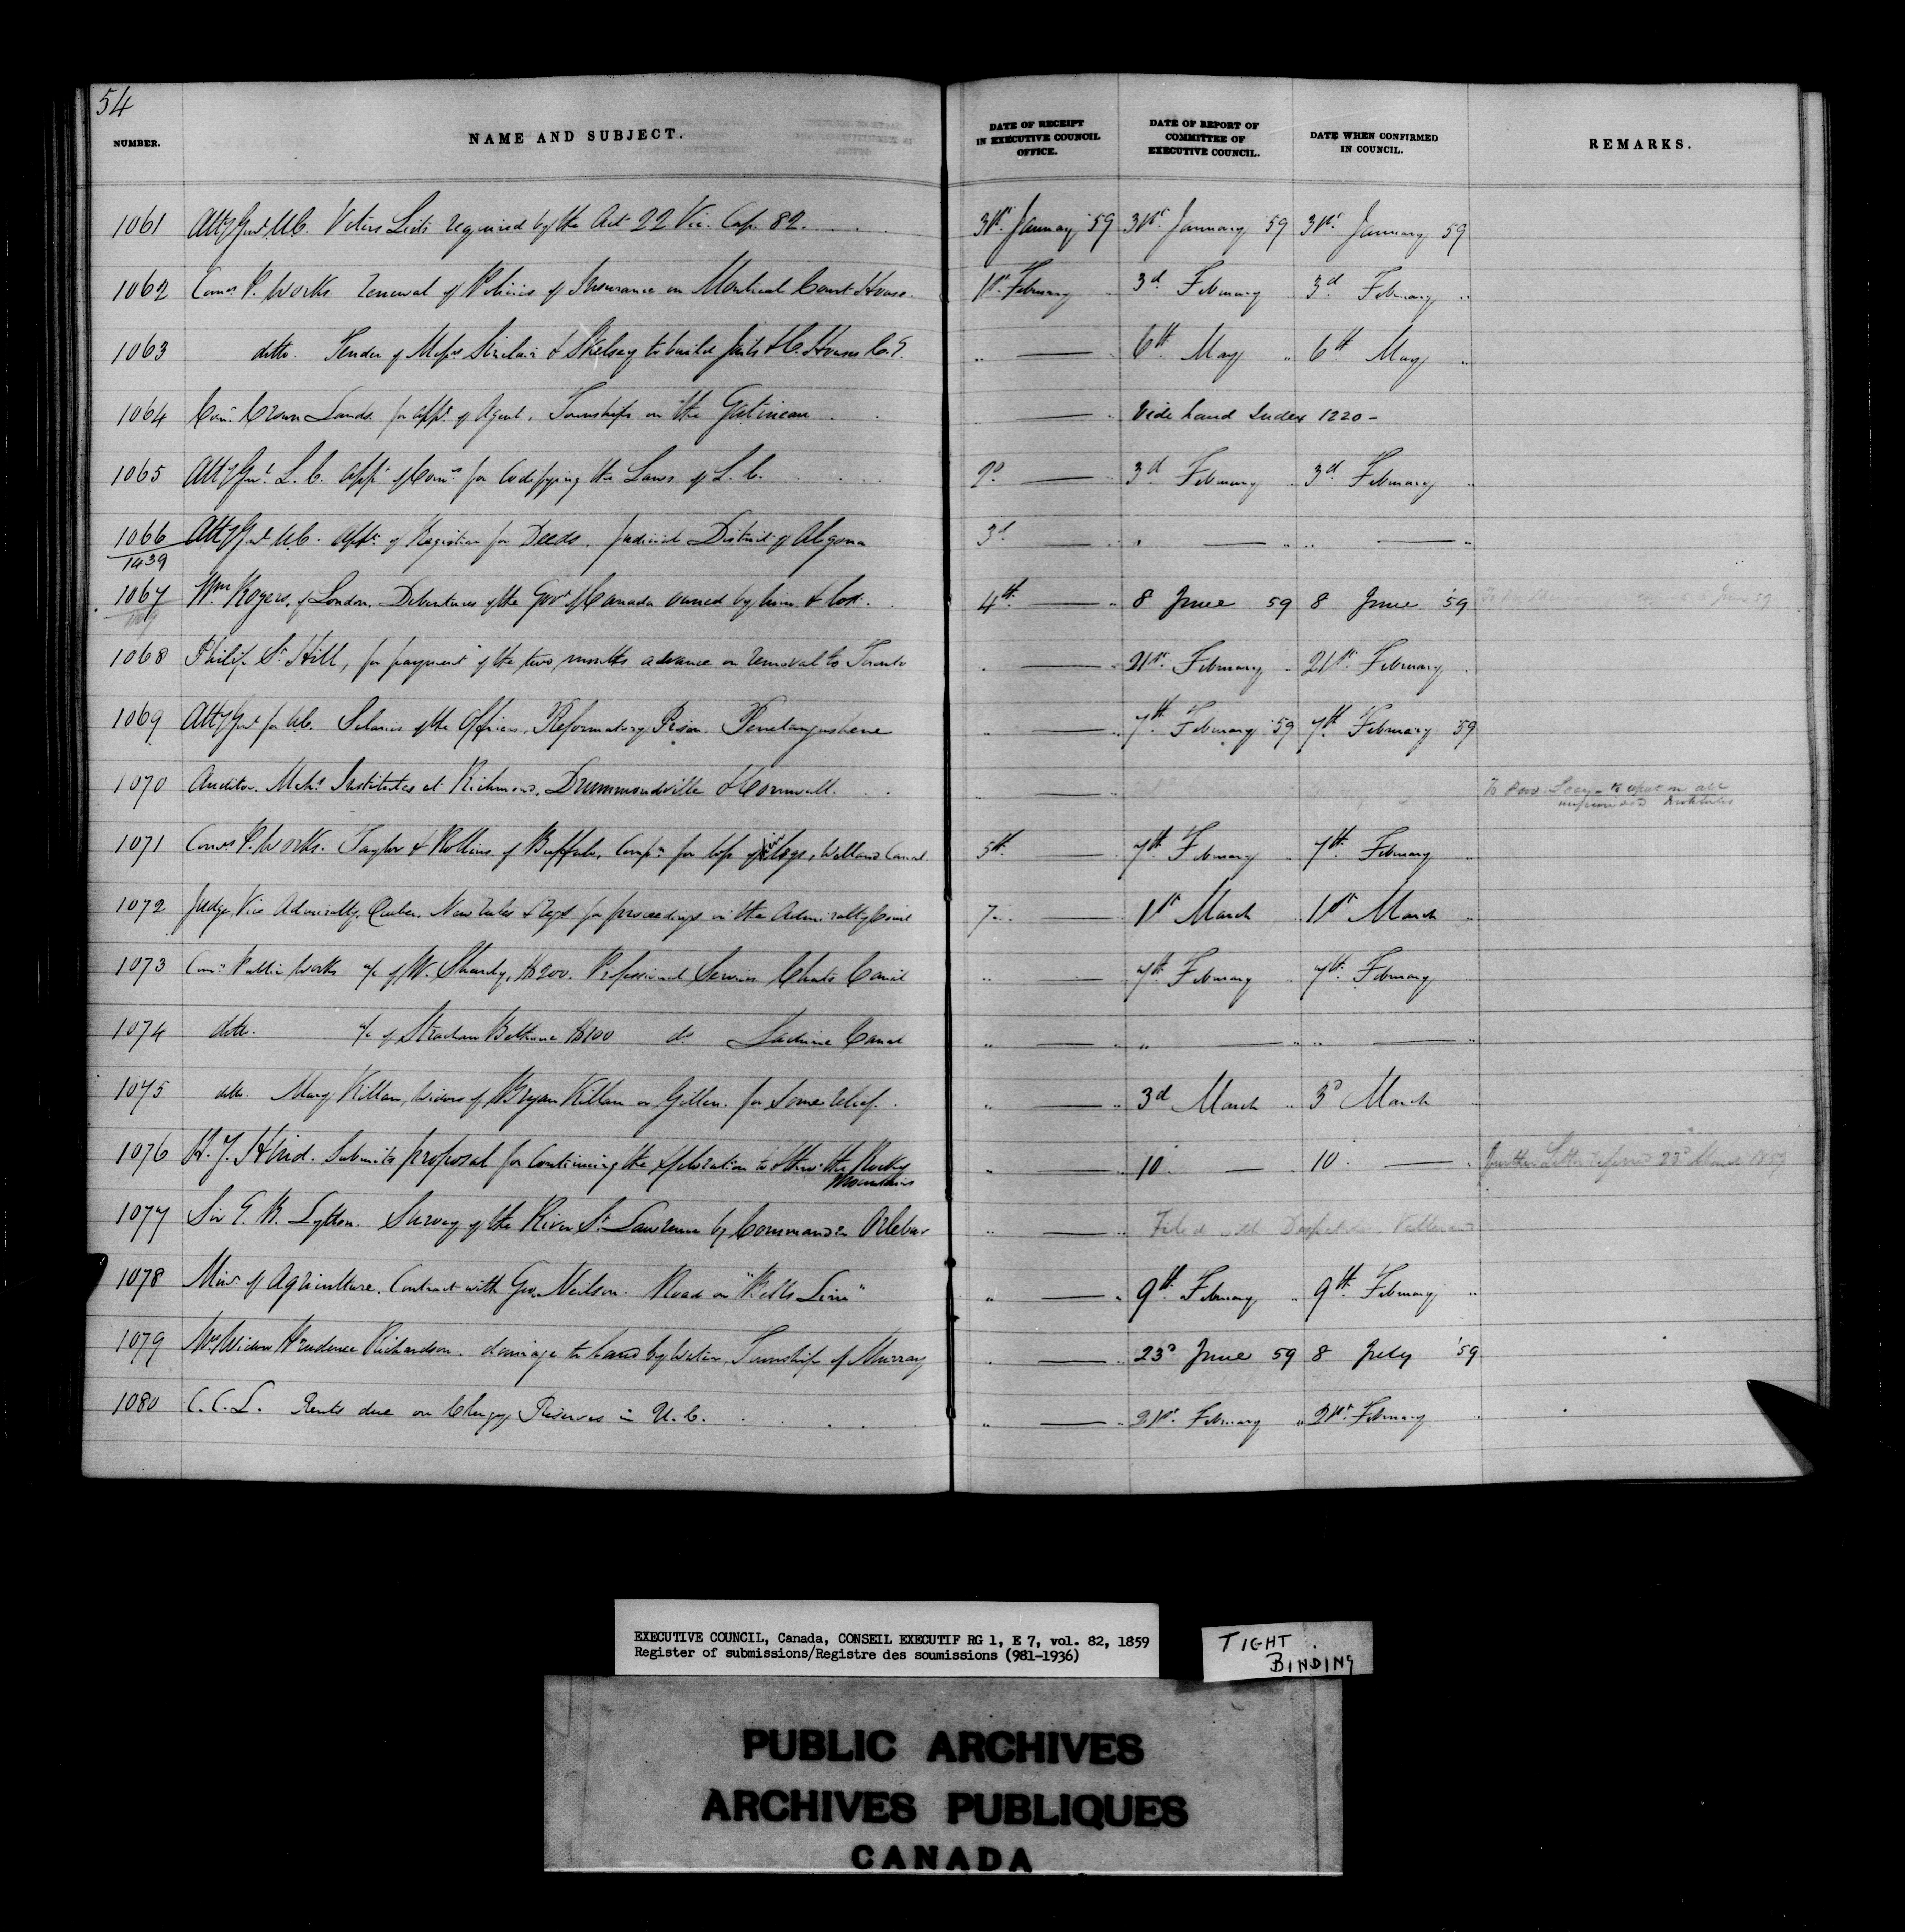 54
NUMBER. NAME AND SUBJECT. DATE OF RECEIPT IN EXECUTIVE COUNCIL OFFICE. DATE OF REPORT OF COMMITTEE OF EXECUTIVE COUNCIL. DATE WHEN CONFIRMED IN COUNCIL. REMARKS.
1061 Atty Genl U.C. Voters Lists required by the Act 22 Vic. Cap. 82. 31st January 59 31st January 59 31st January 59
1062 Comrs P. Works. renewal of Policies of Insurance on Montreal Court House. 1st February 3d February 3d February
1063 ditto. Tender of Messrs Sinclair & Skelsey to build Jails & C. Houses C.E. 6th May 6th May
1064 Comr Crown Lands. for appt of Agent, Townships on the Gatineau Vide hand Index 1220 -
1065 Atty Genl L.C. appt of Comrs for Codifying the Laws of L.C. 2d 3d February 3d February
1066 Atty Genl U.C. appt of Registrar for Deeds, Judicial District of Algoma 3d
1439
1067 Wm Rogers, of London, Debentures of the Govt of Canada owned by him & lost. 4th 8 June 59 8 June 59
1068 Philip St. Hill, for payment of the two months advance on removal to Toronto 21st February 21st February
1069 Atty Genl for U.C. Salaries of the Officers, Reformatory Prison. Penetanguishene 7th February 59 7th February 59
1070 Auditor. Mchs Institutes at Richmond, Drummondville & Cornwall. To Prov. Secy - to report on all Institutes
1071 Comrs P. Works. Taylor & Rollins of Buffalo, Compn for loss of logs, Welland Canal 5th 7th February 7th February
1072 Judge, Vice Admiralty, Quebec, New rules & regs for proceedings in the Admiralty Court 7 1st March 1st March
1073 Comrs Public Works a/c of W. Shanly, $200. Professional Services Chats Canal 7th February 7th February
1074 ditto. a/c of Strachan Bethune $100 do Lachine Canal
1075 ditto. Mary Killan, widow of Bryan Killan or Gillen. for some relief. 3d March 3d March
1076 H. Y. Hind. Submits proposal for Continuing the exploration to the Rocky Mountains 10 10 further Letter referred 23d March 1859
1077 Sir E. B. Lytton. Survey of the River St. Lawrence by Commander Orlebar Filed with Despatches
1078 Minr of Agriculture. Contract with Geo. Neilson. Road on "Bells Line" 9th February 9th February
1079 Mrs Widow Prudence Richardson. damage to land by Water, Township of Murray 23d June 59 8 July 59
1080 C.C.L. Rents due on Clergy Reserves in U.C. 21st February 21st February
EXECUTIVE COUNCIL, Canada, CONSEIL EXECUTIF RG 1, E 7, vol. 82, 1859
Register of submissions/Registre des soumissions (981-1936)
TIGHT
BINDING
PUBLIC ARCHIVES
ARCHIVES PUBLIQUES
CANADA